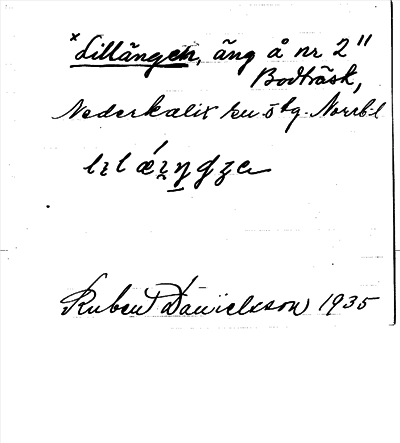 ×Lillängen, äng å nr 2"
Bodträsk,
Nederkalix sn Norrb.l
Ruben Danielsson 1935